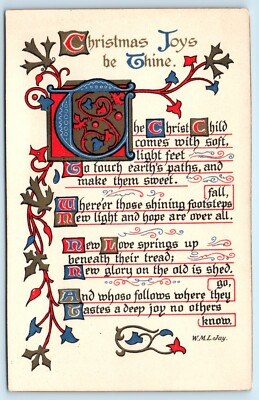 Christmas Joys
be Thine.
The Christ Child
comes with soft,
light feet
To touch earth's paths, and
make them sweet.
fall,
Where'er those shining footsteps
New light and hope are over all.
New Love springs up
beneath their tread;
New glory on the old is shed.
go,
And whoso follows where they
Tastes a deep joy no others
know.
W.M.L. Jay.